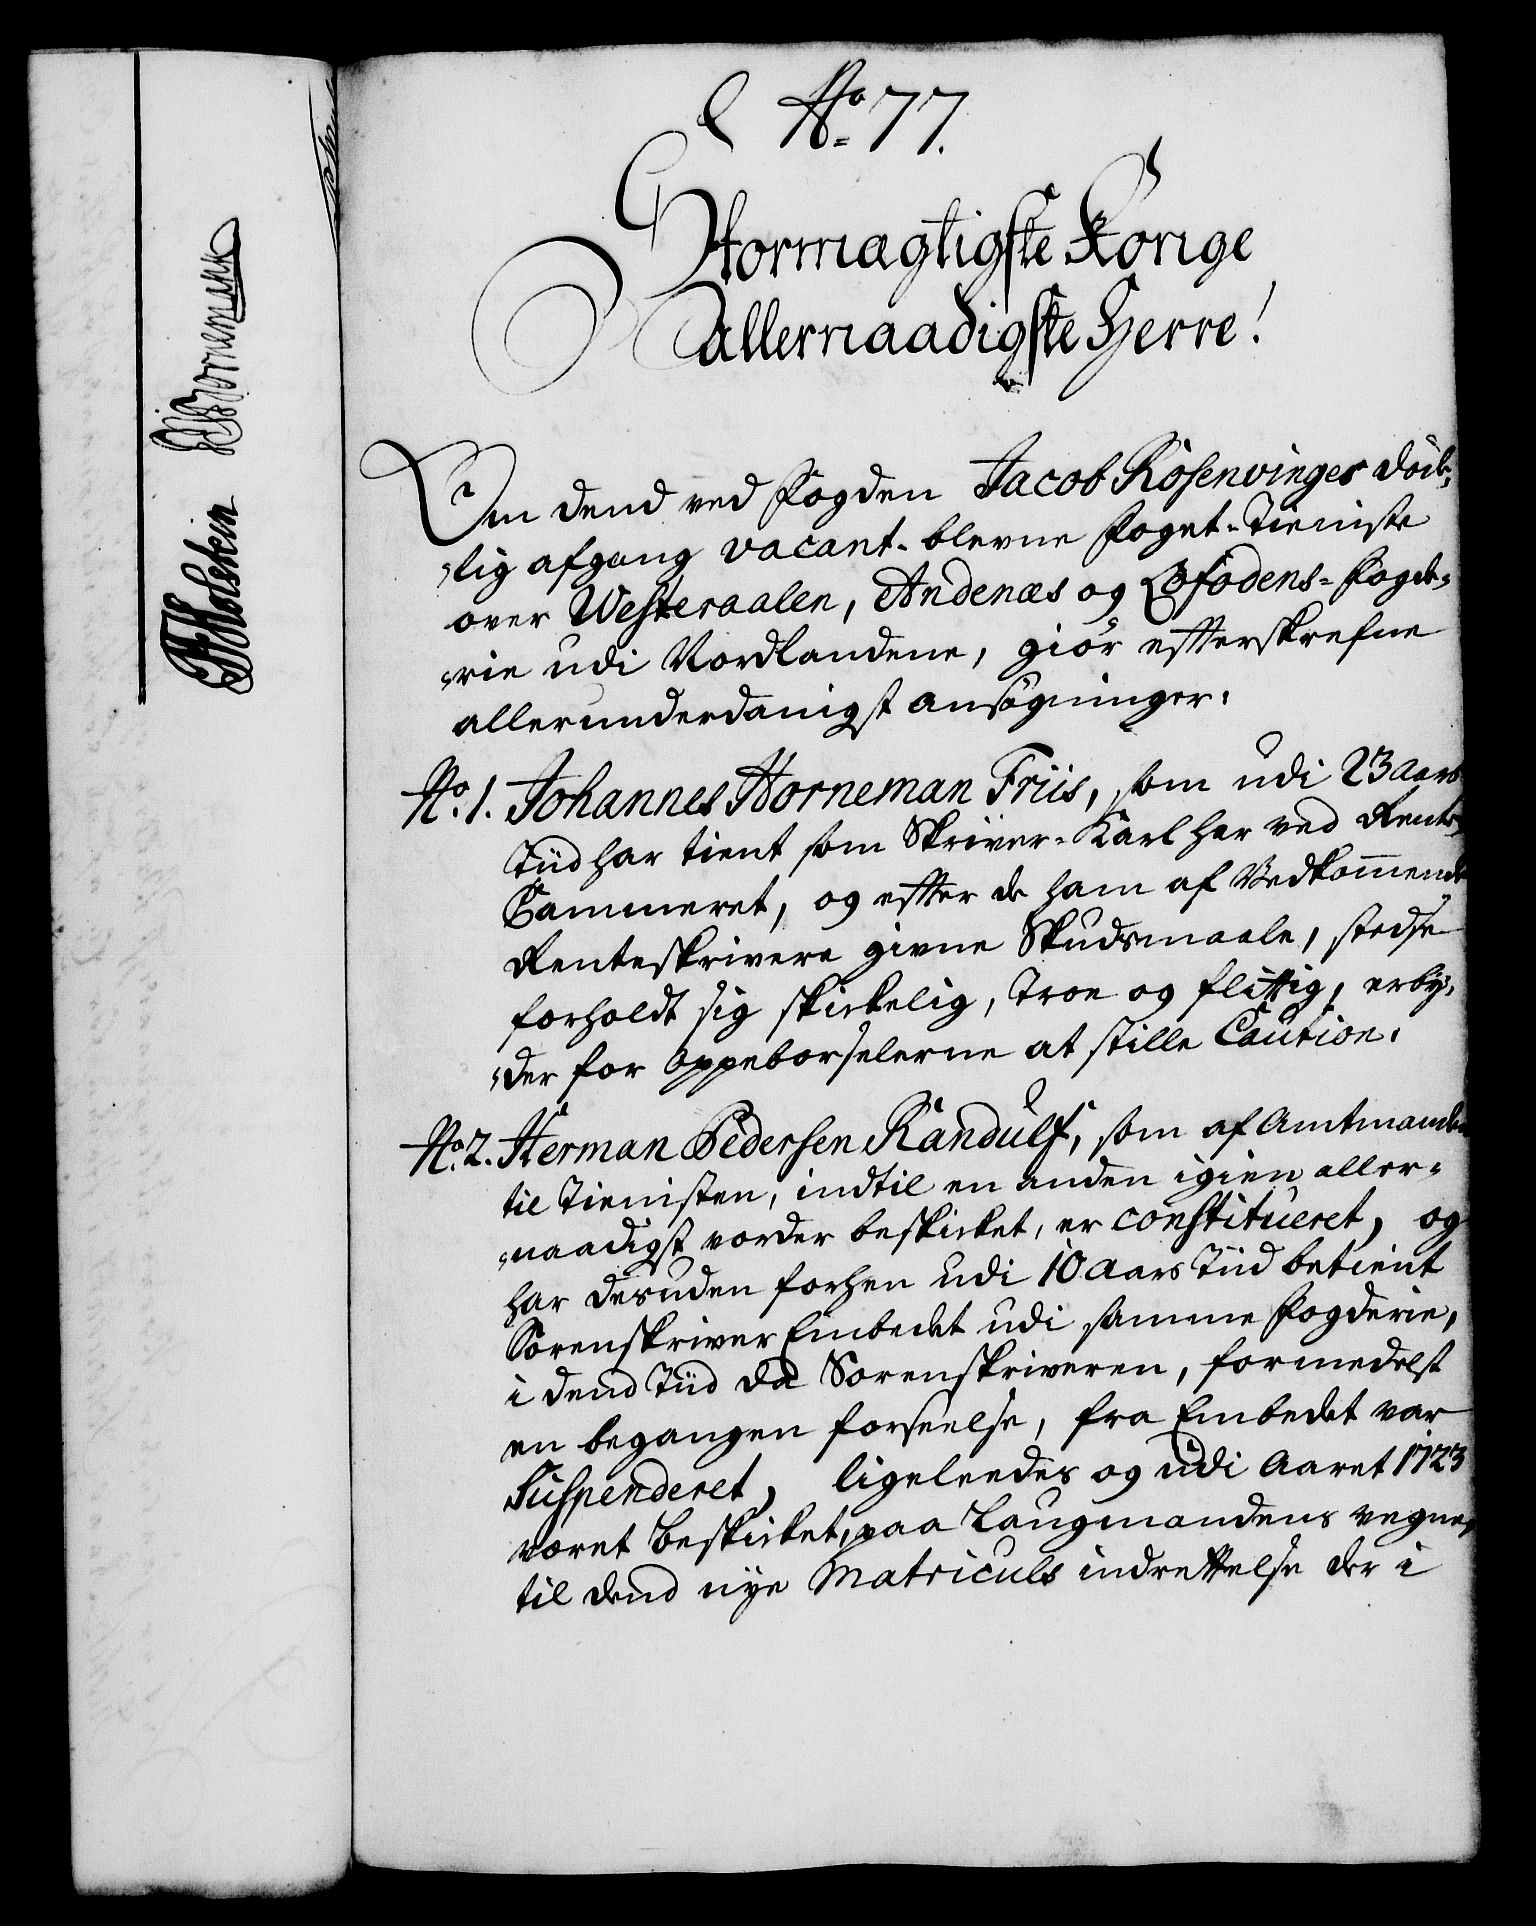 No. 77.
Stormægtigste Konge
allernaadigste Herre!
Om dend ved Fogden Jacob Rosenvinges død-
lig afgang vacant-blevne Foget-Tieniste
over Westeraalen, Andenæs og Lofodens-Fogde-
rie udi Nordlandene, giør efterskrefne
allerunderdanigst ansøgninger.
No. 1. Johannes Horneman Friis, som udi 23 aars
Tiid har tient som Skriver-Karl her ved Rente-
Cammeret, og effter de ham af Vedkommende
Renteskrivere givne Skudsmaale, stedse
forholdt sig skickelig, troe og flittig, erby-
der for Oppeborselerne at stille Caution.
No. 2. Herman Pedersen Randulf, som af Amtmanden
til Tienisten, indtil en anden igien aller-
naadigst vorder beskicket, er constitueret, og
har desuden forhen udi 10 aars Tiid betient
Sorenskriver Embedet udi samme Fogderie,
i dend Tiid da Sorenskriveren, formedelst
en begangen forseelse, fra Embedet var
Suspenderet, ligeleedes og udi Aaret 1723
været beskicket, paa Laugmandens vegne,
til dend nye Matriculs indrettelse der i
JHolstein
Bornemann